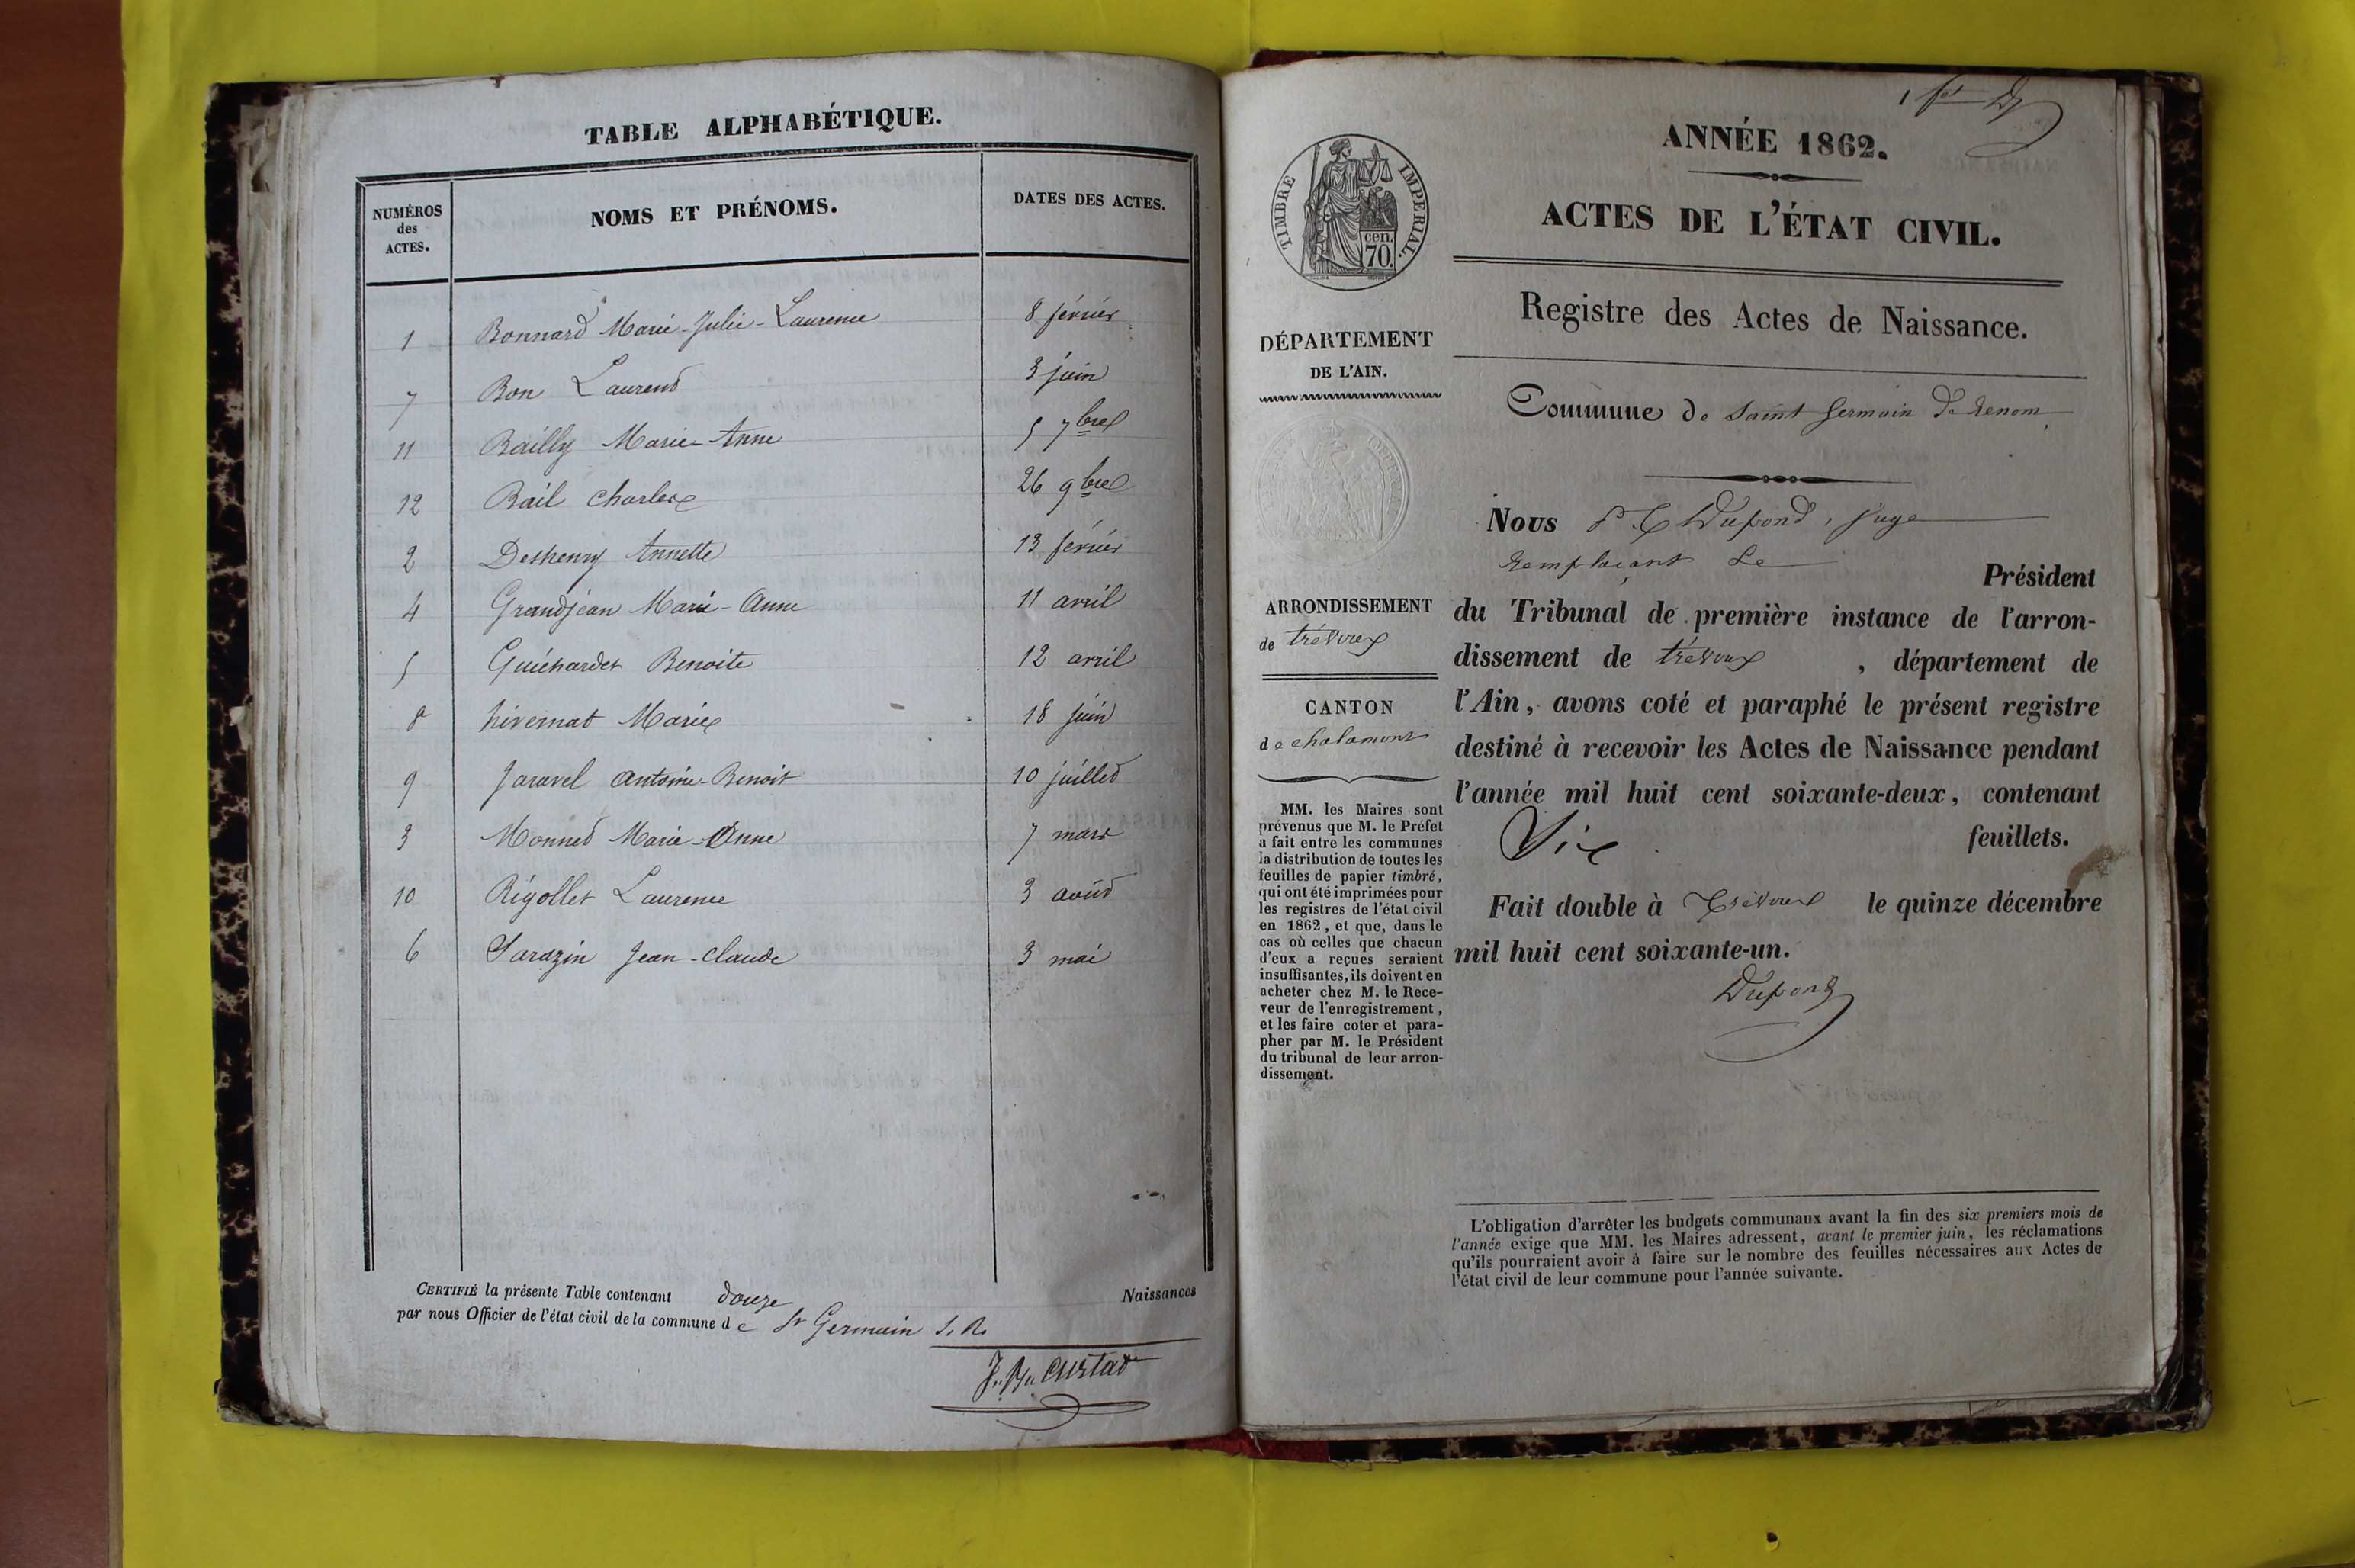 TABLE ALPHABÉTIQUE.
NUMÉROS
des
ACTES.
NOMS ET PRÉNOMS.
DATES DES ACTES.
1 Bonnard Marie-Julie-Laurence 8 février
7 Bon Laurend 3 juin
11 Bailly Marie-Anne 5 7bre
12 Bail Charles 26 9bre
2 Deshenry Annette 13 février
4 Grandjean Marie-Anne 11 avril
5 Guichardet Benoite 12 avril
8 hivernat Marie 18 juin
9 Jaravel Antoine-Benoit 10 juilled
3 Monned Marie-Anne 7 mars
10 Rigollet Laurence 3 aoûd
6 Sarazin Jean-Claude 3 mai
CERTIFIÉ la présente Table contenant douze Naissances
par nous Officier de l'état civil de la commune de St Germain S. R.
1 fet
ANNÉE 1862.
ACTES DE L'ÉTAT CIVIL.
TIMBRE IMPERIAL.
cen.
70.
Registre des Actes de Naissance.
DÉPARTEMENT
DE L'AIN.
Commune de Saint Germain de Renom
ARRONDISSEMENT
de trévoux
CANTON
de chalamont
MM. les Maires sont
prévenus que M. le Préfet
a fait entre les communes
la distribution de toutes les
feuilles de papier timbré,
qui ont été imprimées pour
les registres de l'état civil
en 1862, et que, dans le
cas où celles que chacun
d'eux a reçues seraient
insuffisantes, ils doivent en
acheter chez M. le Rece-
veur de l'enregistrement,
et les faire coter et para-
pher par M. le Président
du tribunal de leur arron-
dissement.
Nous Dupond, juge
Remplaçant Le Président
du Tribunal de première instance de l'arron-
dissement de trévoux, département de
l'Ain, avons coté et paraphé le présent registre
destiné à recevoir les Actes de Naissance pendant
l'année mil huit cent soixante-deux, contenant
Six feuillets.
Fait double à Trévoux le quinze décembre
mil huit cent soixante-un.
Dupond
L'obligation d'arrêter les budgets communaux avant la fin des six premiers mois de
l'année exige que MM. les Maires adressent, avant le premier juin, les réclamations
qu'ils pourraient avoir à faire sur le nombre des feuilles nécessaires aux Actes de
l'état civil de leur commune pour l'année suivante.